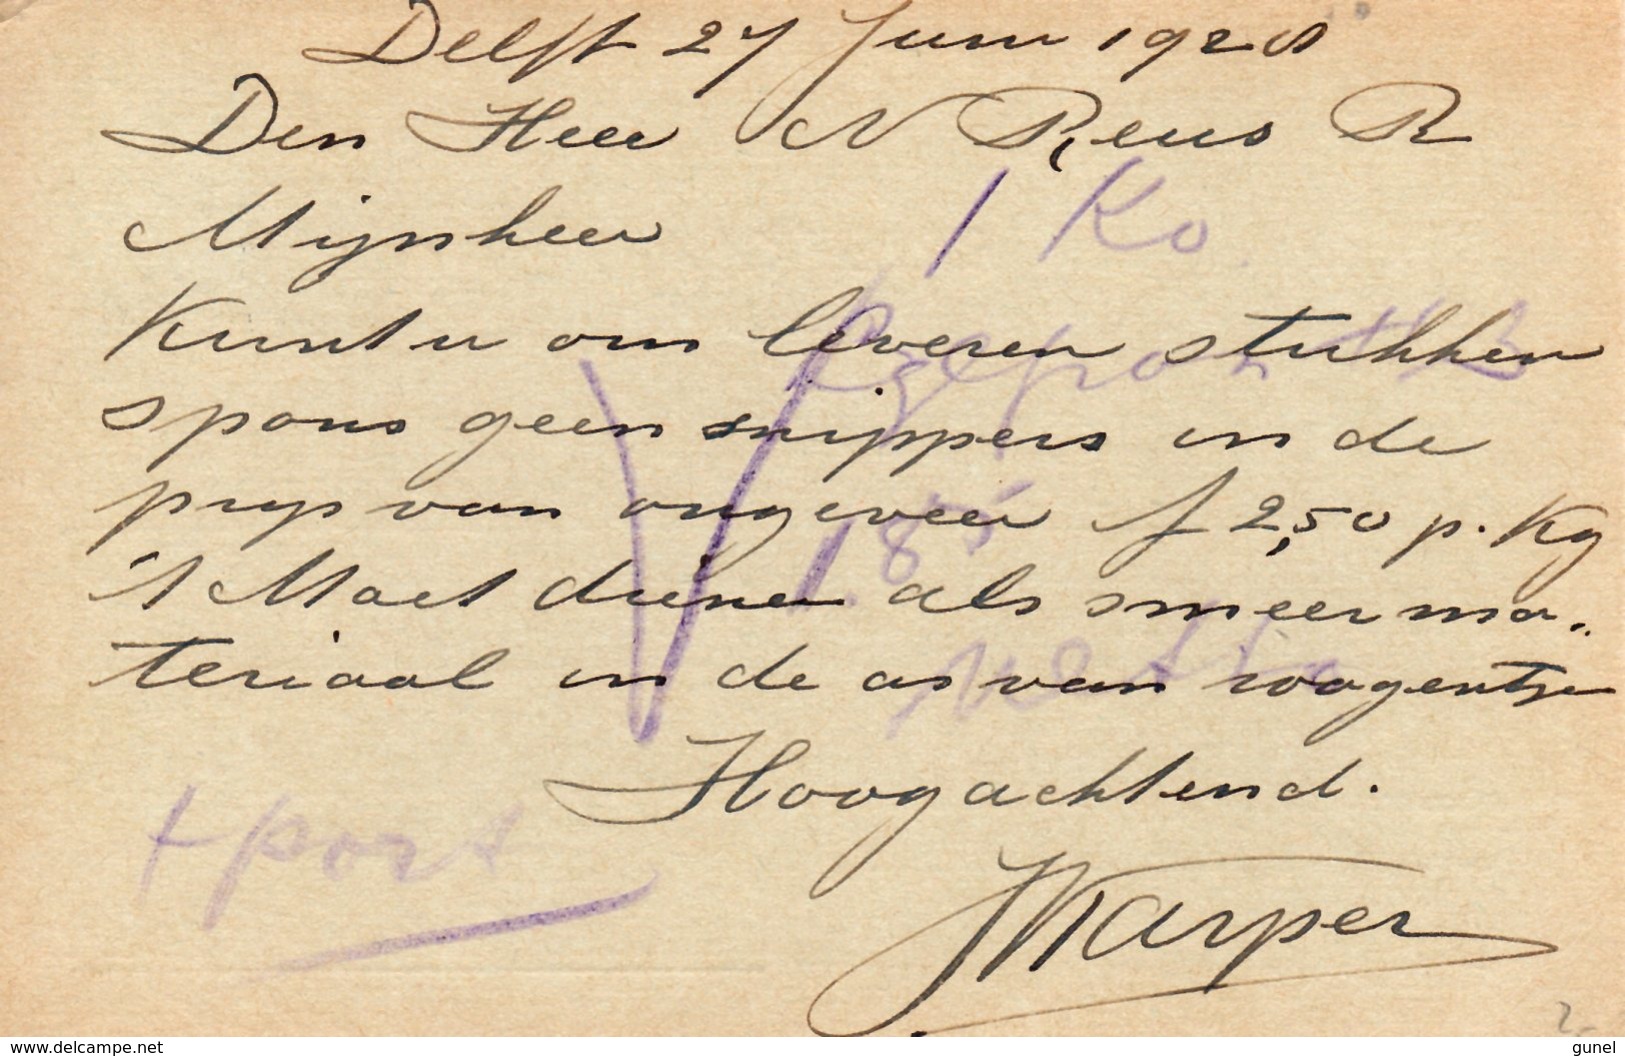 Delft 27 Juni 1928
Den Heer N Reus R
Mijnheer
1 Ko.
Kunt u om leveren stukken
spons geen snippers in de
prijs van ongeveer f 2,50 p. Kg
't Moet dienen als smeerma..
teriaal in de as van wagentje
Hoogachtend.
+ port
JKarper
2.-
www.delcampe.net
gunel